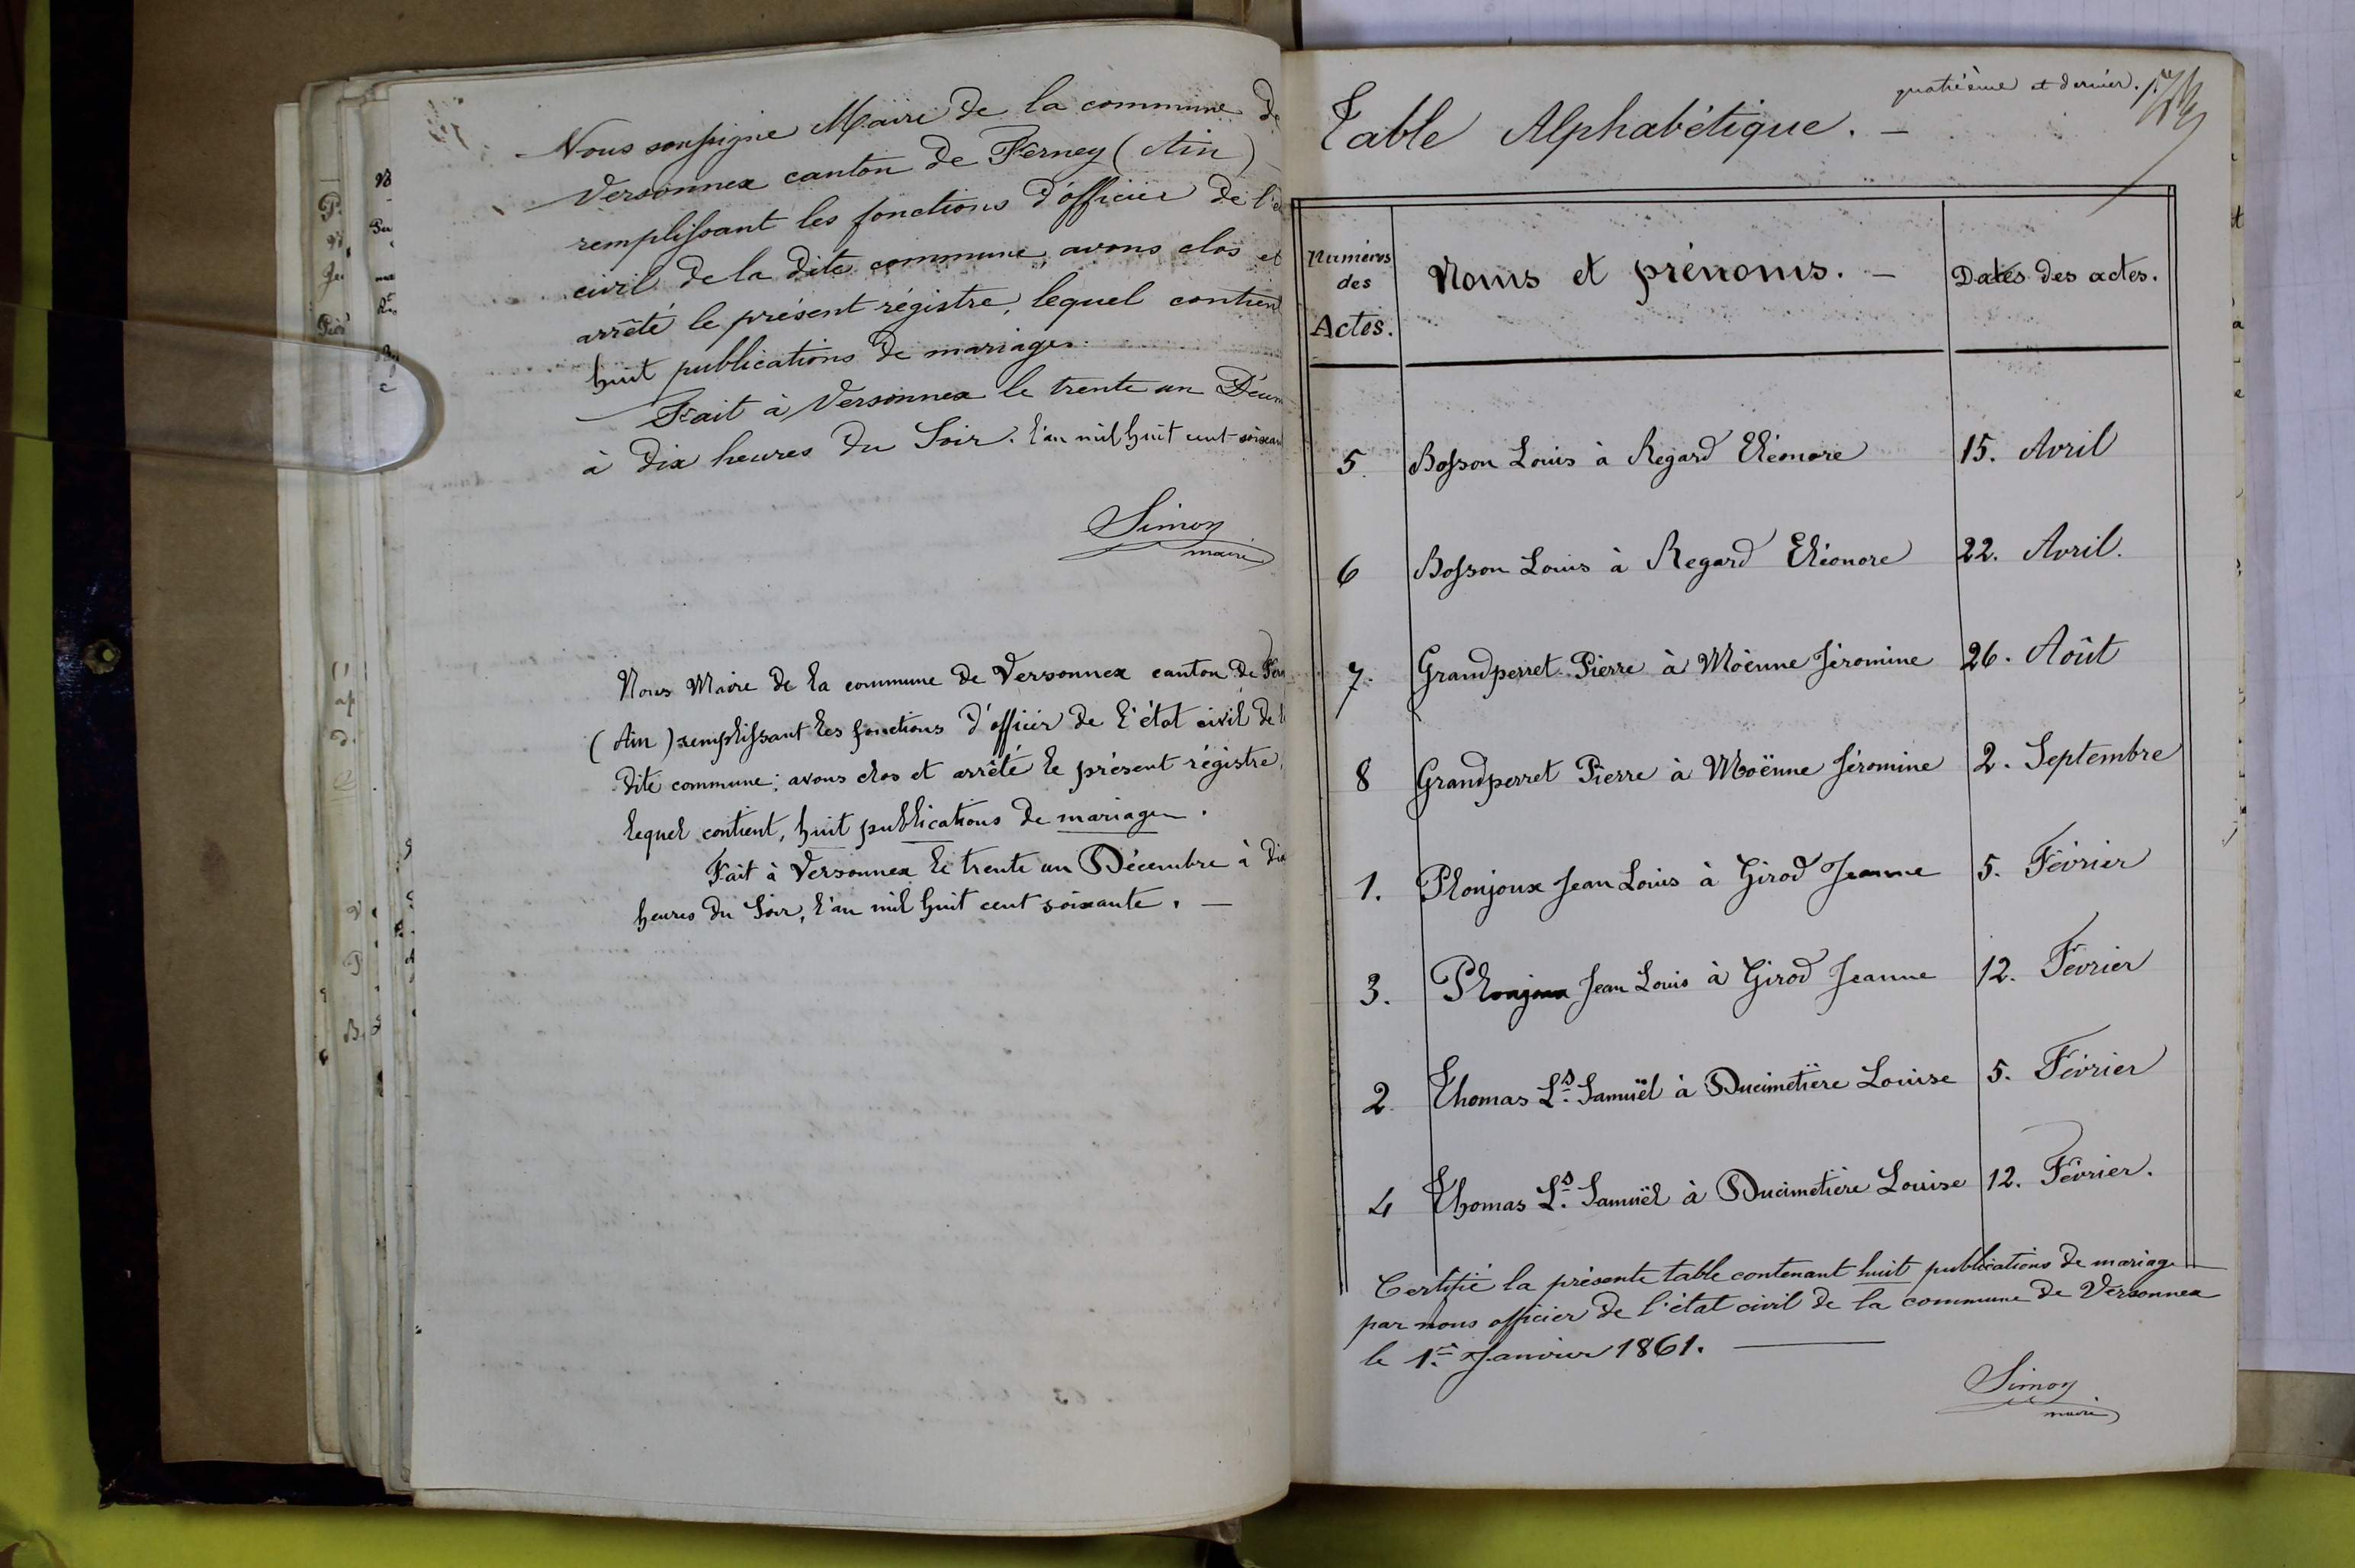 Nous soussigné Maire de la commune de
Versonnex canton de Ferney (Ain)
remplissant les fonctions d'officier de l'é
civil de la dite commune, avons clos et
arrêté le présent régistre, lequel contient
huit publications de mariages.
Fait à Versonnex le trente un Décem
à dix heures du Soir. l'an mil huit cent soixan
Simon
maire
Nous Maire de la commune de Versonnex canton de Fern
(Ain) remplissant les fonctions d'officier de l'état civil de l
dite commune; avons clos et arrêté le présent régistre,
lequel contient, huit publications de mariages.
Fait à Versonnex le trente un Décembre à dix
heures du Soir, l'an mil huit cent soixante. —
quatrième et dernier.
Table Alphabétique. —
Numéros des Actes. Noms et prénoms. — Dates des actes.
5. Bosson Louis à Regard Eléonore 15. Avril
6 Bosson Louis à Regard Eléonore 22. Avril.
7. Grandperret Pierre à Moënne Jéromine 26. Août
8 Grandperret Pierre à Moënne Jéromine 2. Septembre
1. Plonjoux Jean Louis à Girod Jeanne 5. Février
3. Plonjoux Jean Louis à Girod Jeanne 12. Février
2. Thomas Ls. Samuël à Ducimetière Louise 5. Février
4 Thomas Ls. Samuël à Ducimetière Louise 12. Février.
Certifié la présente table contenant huit publications de mariage
par nous officier de l'état civil de la commune de Versonnex
le 1er. Janvier 1861. —
Simon
maire